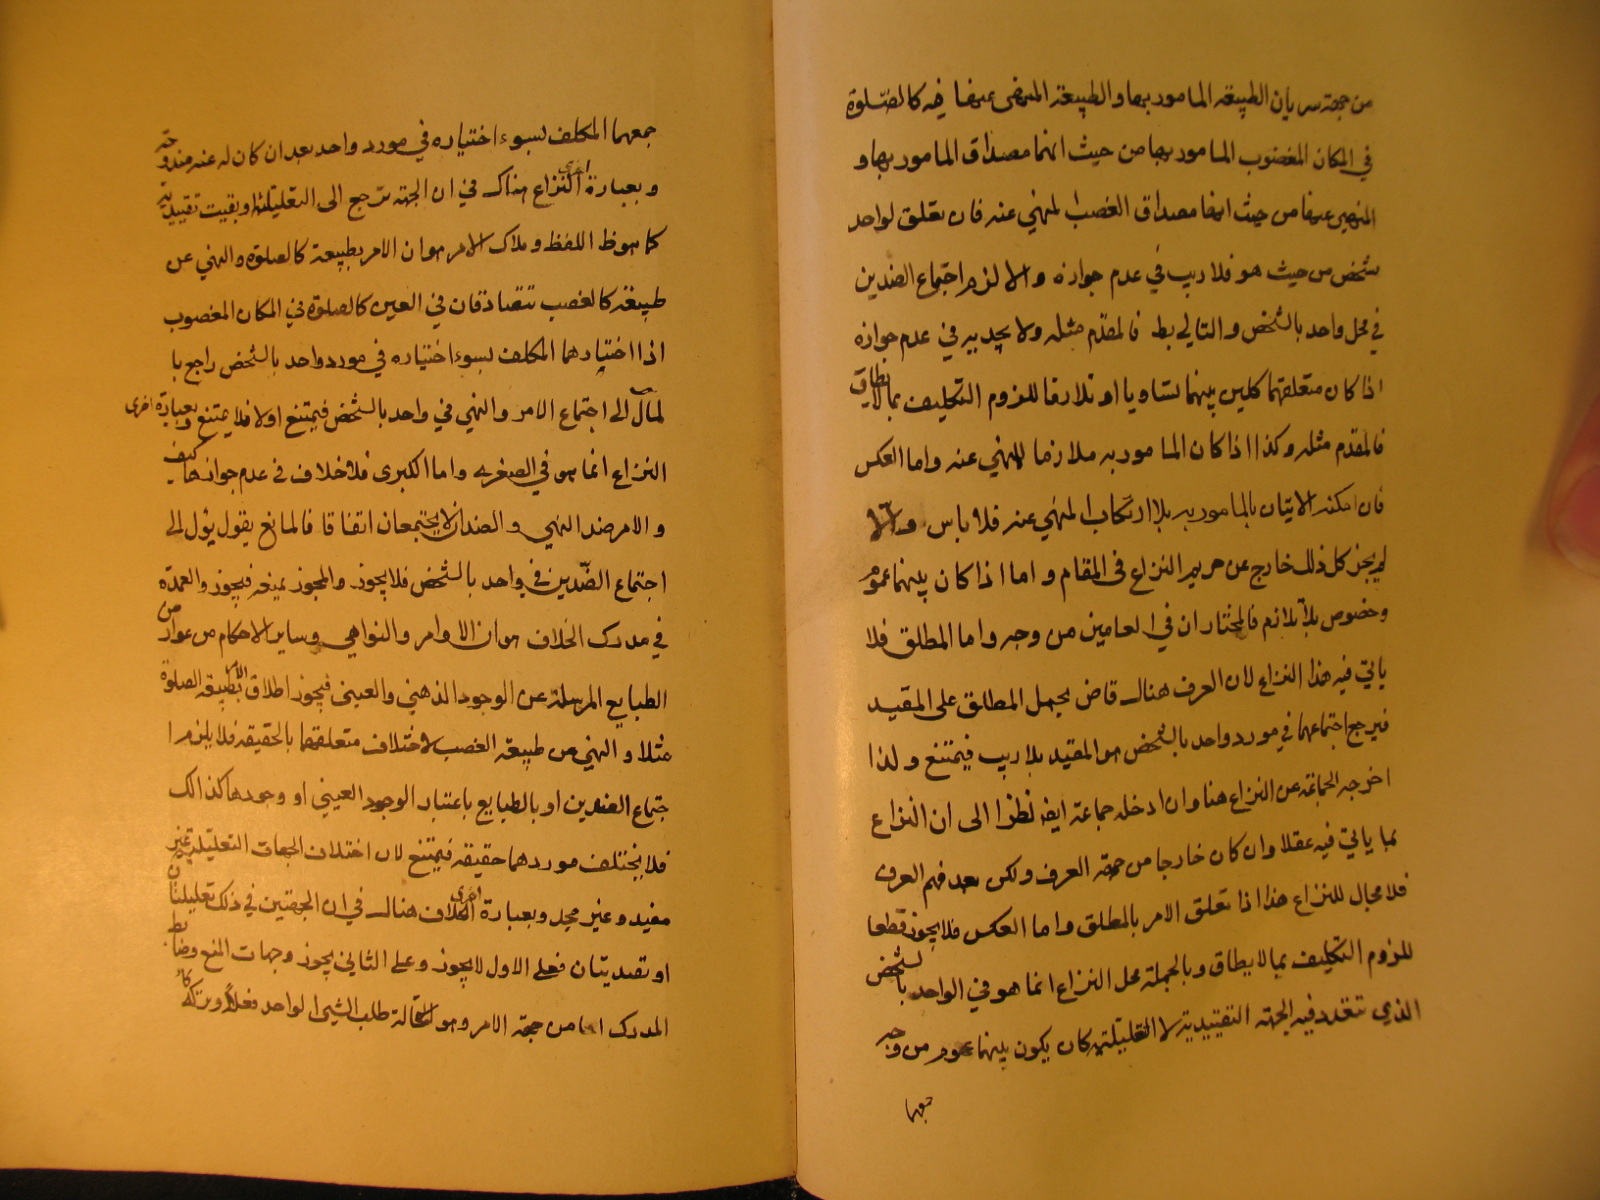 من جهة سريان الطبيعة المامور بها و الطبيعة المنهى عنها فيه كالصّلوة
في المكان المغصوب المامور بها من حيث انها مصداق المامور بها و
المنهي عنها من حيث انها مصداق الغصب المنهي عنه فان تعلق لواحد
شخص من حيث هو فلا ريب في عدم جوازه والا لزم اجتماع الضدين
في محل واحد بالشخص و التالي بط فالمقدم مثله ولا يجد به في عدم جوازه
اذا كان متعلقهما كليين بينهما تساويا او تلازما للزوم التكليف بما لا يطاق
فالمقدم مثله و كذا اذا كان المامور به ملازما للمنهي عنه واما العكس
فان امكنه الاتيان بالمامور به بلا ارتكاب المنهي عنه فلا باس والّا
لم يجز كل ذلك خارج عن حريم النزاع فى المقام و اما اذا كان بينهما عموم
وخصوص بلا تلازم فالمختار ان في العامين من وجه واما المطلق فلا
ياتي فيه هذا النزاع لان العرف هناك قاض بحمل المطلق على المقيد
فيرجع اجتماعهما في مورد واحد بالشخص هو المقيد بلا ريب فيمتنع و لذا
اخرجه الجماعة عن النزاع هنا وان ادخله جماعة ايضا نظرا الى ان النزاع
بما ياتي فيه عقلا وان كان خارجا من جهة العرف ولكن بعد فهم العرف
فلا مجال للنزاع هذا اذا تعلق الامر بالمطلق واما العكس فلا يجوز قطعا
للزوم التكليف بما لا يطاق و بالجملة محل النزاع انما هو في الواحد بالشخص
الذي تتعدد فيه الجهة التقييدية لا التعليلية كان يكون بينهما عموم من وجه
جمعهما
جمعهما المكلف بسوء اختياره في مورد واحد بعد ان كان له عنه مندوحة
و بعبارة اخرى النزاع هناك في ان الجهة ترجع الى التعليلية او بقيت تقييدية
كما هو ظ اللفظ و ملاك الامر هو ان الامر بطبيعة كالصلوة والنهي عن
طبيعة كالغصب تتصادقان في العين كالصلوة في المكان المغصوب
اذا اختارهما المكلف بسوء اختياره في مورد واحد بالشخص راجع با
لمآل الى اجتماع الامر والنهي في واحد بالشخص فيمتنع اولا فلا يمتنع وبعبارة اخرى
النزاع انما هو في الصغرى واما الكبرى فلا خلاف في عدم جوازها كيف
و الامر ضد النهي و الضدان لا يجتمعان اتفاقا فالمانع يقول يؤل الى
اجتماع الضّدين في واحد بالشخص فلا يجوز والمجوز يمنعه فيجوز والعمدة
في مدرك الخلاف هو ان الاوامر والنواهي وساير الاحكام من عوارض
الطبايع المرسلة عن الوجود الذهني والعيني فيجوز اطلاق الامر بطبيعة الصلوة
مثلا و النهي عن طبيعة الغصب لاختلاف متعلقهما بالحقيقة فلا يلزم ا
جتماع الضدين او بالطبايع باعتبار الوجود العيني او وجودها كذالك
فلا يختلف موردهما حقيقة فيمتنع لان اختلاف الجهات التعليلية غير
مفيد و غير مجد و بعبارة اخرى الخلاف هناك في ان الجهتين في ذلك تعليليتان
او تقييديتان فعلى الاول لا يجوز و على الثاني يجوز وجهات المنع وضابط
المدرك اما من جهة الامر وهو استحالة طلب الشئ الواحد فعلاً وتركا